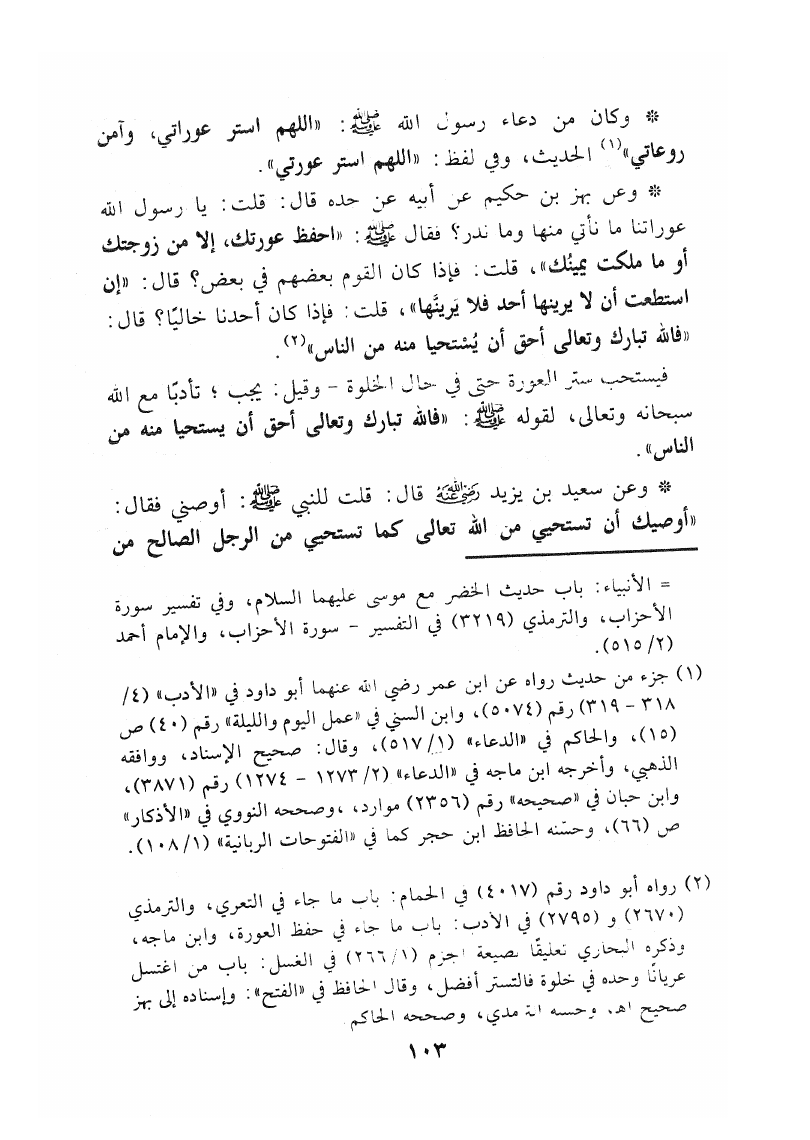 * وكان من دعاء رسول الله ﷺ: «اللهم استر عوراتي، وآمن
روعاتي»(١) الحديث، وفي لفظ: «اللهم استر عورتي».
* وعن بهز بن حكيم عن أبيه عن جده قال: قلت: يا رسول الله
عوراتنا ما نأتي منها وما نذر؟ فقال ﷺ: «احفظ عورتك، إلا من زوجتك
أو ما ملكت يمينُك»، قلت: فإذا كان القوم بعضهم في بعض؟ قال: «إن
استطعت أن لا يرينها أحد فلا يَرينَّها»، قلت: فإذا كان أحدنا خاليًا؟ قال:
«فالله تبارك وتعالى أحق أن يُسْتحيا منه من الناس»(٢).
فيستحب ستر العورة حتى في حال الخلوة – وقيل: يجب ؛ تأدبًا مع الله
سبحانه وتعالى، لقوله ﷺ: «فالله تبارك وتعالى أحق أن يستحيا منه من
الناس».
* وعن سعيد بن يزيد رضي الله عنه قال: قلت للنبي ﷺ: أوصني فقال:
«أوصيك أن تستحيي من الله تعالى كما تستحيي من الرجل الصالح من
= الأنبياء: باب حديث الخضر مع موسى عليهما السلام، وفي تفسير سورة
الأحزاب، والترمذي (٣٢١٩) في التفسير – سورة الأحزاب، والإمام أحمد
(٢/ ٥١٥).
(١) جزء من حديث رواه عن ابن عمر رضي الله عنهما أبو داود في «الأدب» (٤/
٣١٨ – ٣١٩) رقم (٥٠٧٤)، وابن السني في «عمل اليوم والليلة» رقم (٤٠) ص
(١٥)، والحاكم في «الدعاء» (١/ ٥١٧)، وقال: صحيح الإسناد، ووافقه
الذهبي، وأخرجه ابن ماجه في «الدعاء» (٢/ ١٢٧٣ – ١٢٧٤) رقم (٣٨٧١)،
وابن حبان في «صحيحه» رقم (٢٣٥٦) موارد، ،وصححه النووي في «الأذكار»
ص (٦٦)، وحسّنه الحافظ ابن حجر كما في «الفتوحات الربانية» (١/ ١٠٨).
(٢) رواه أبو داود رقم (٤٠١٧) في الحمام: باب ما جاء في التعري، والترمذي
(٢٦٧٠) و (٢٧٩٥) في الأدب: باب ما جاء في حفظ العورة، وابن ماجه،
وذكره البخاري تعليقًا بصيغة الجزم (١/ ٢٦٦) في الغسل: باب من اغتسل
عريانًا وحده في خلوة فالتستر أفضل، وقال الحافظ في «الفتح»: وإسناده إلى بهز
صحيح اهـ. وحسنه الترمذي، وصححه الحاكم.
١٠٣